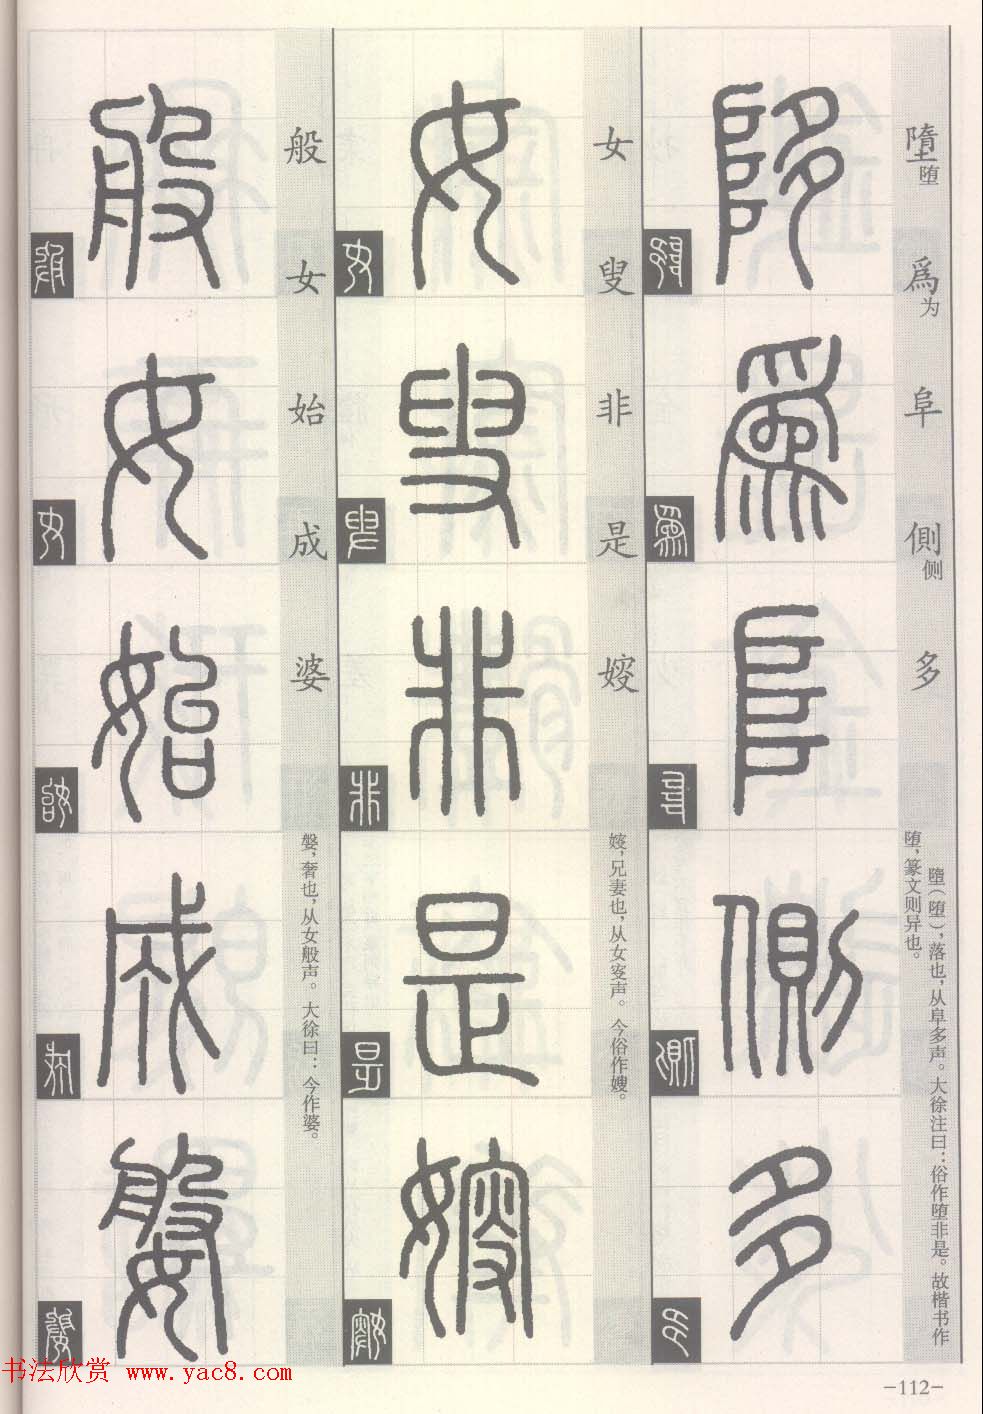 墮堕
爲为
阜
側侧
多
墮(堕),落也,从阜多声。大徐注曰:俗作堕非是。故楷书作
堕,篆文则异也。
女
叟
非
是
㛮
㛮,兄妻也,从女叜声。今俗作嫂。
般
女
始
成
婆
媻,奢也,从女般声。大徐曰:今作婆。
-112-
书法欣赏 www.yac8.com